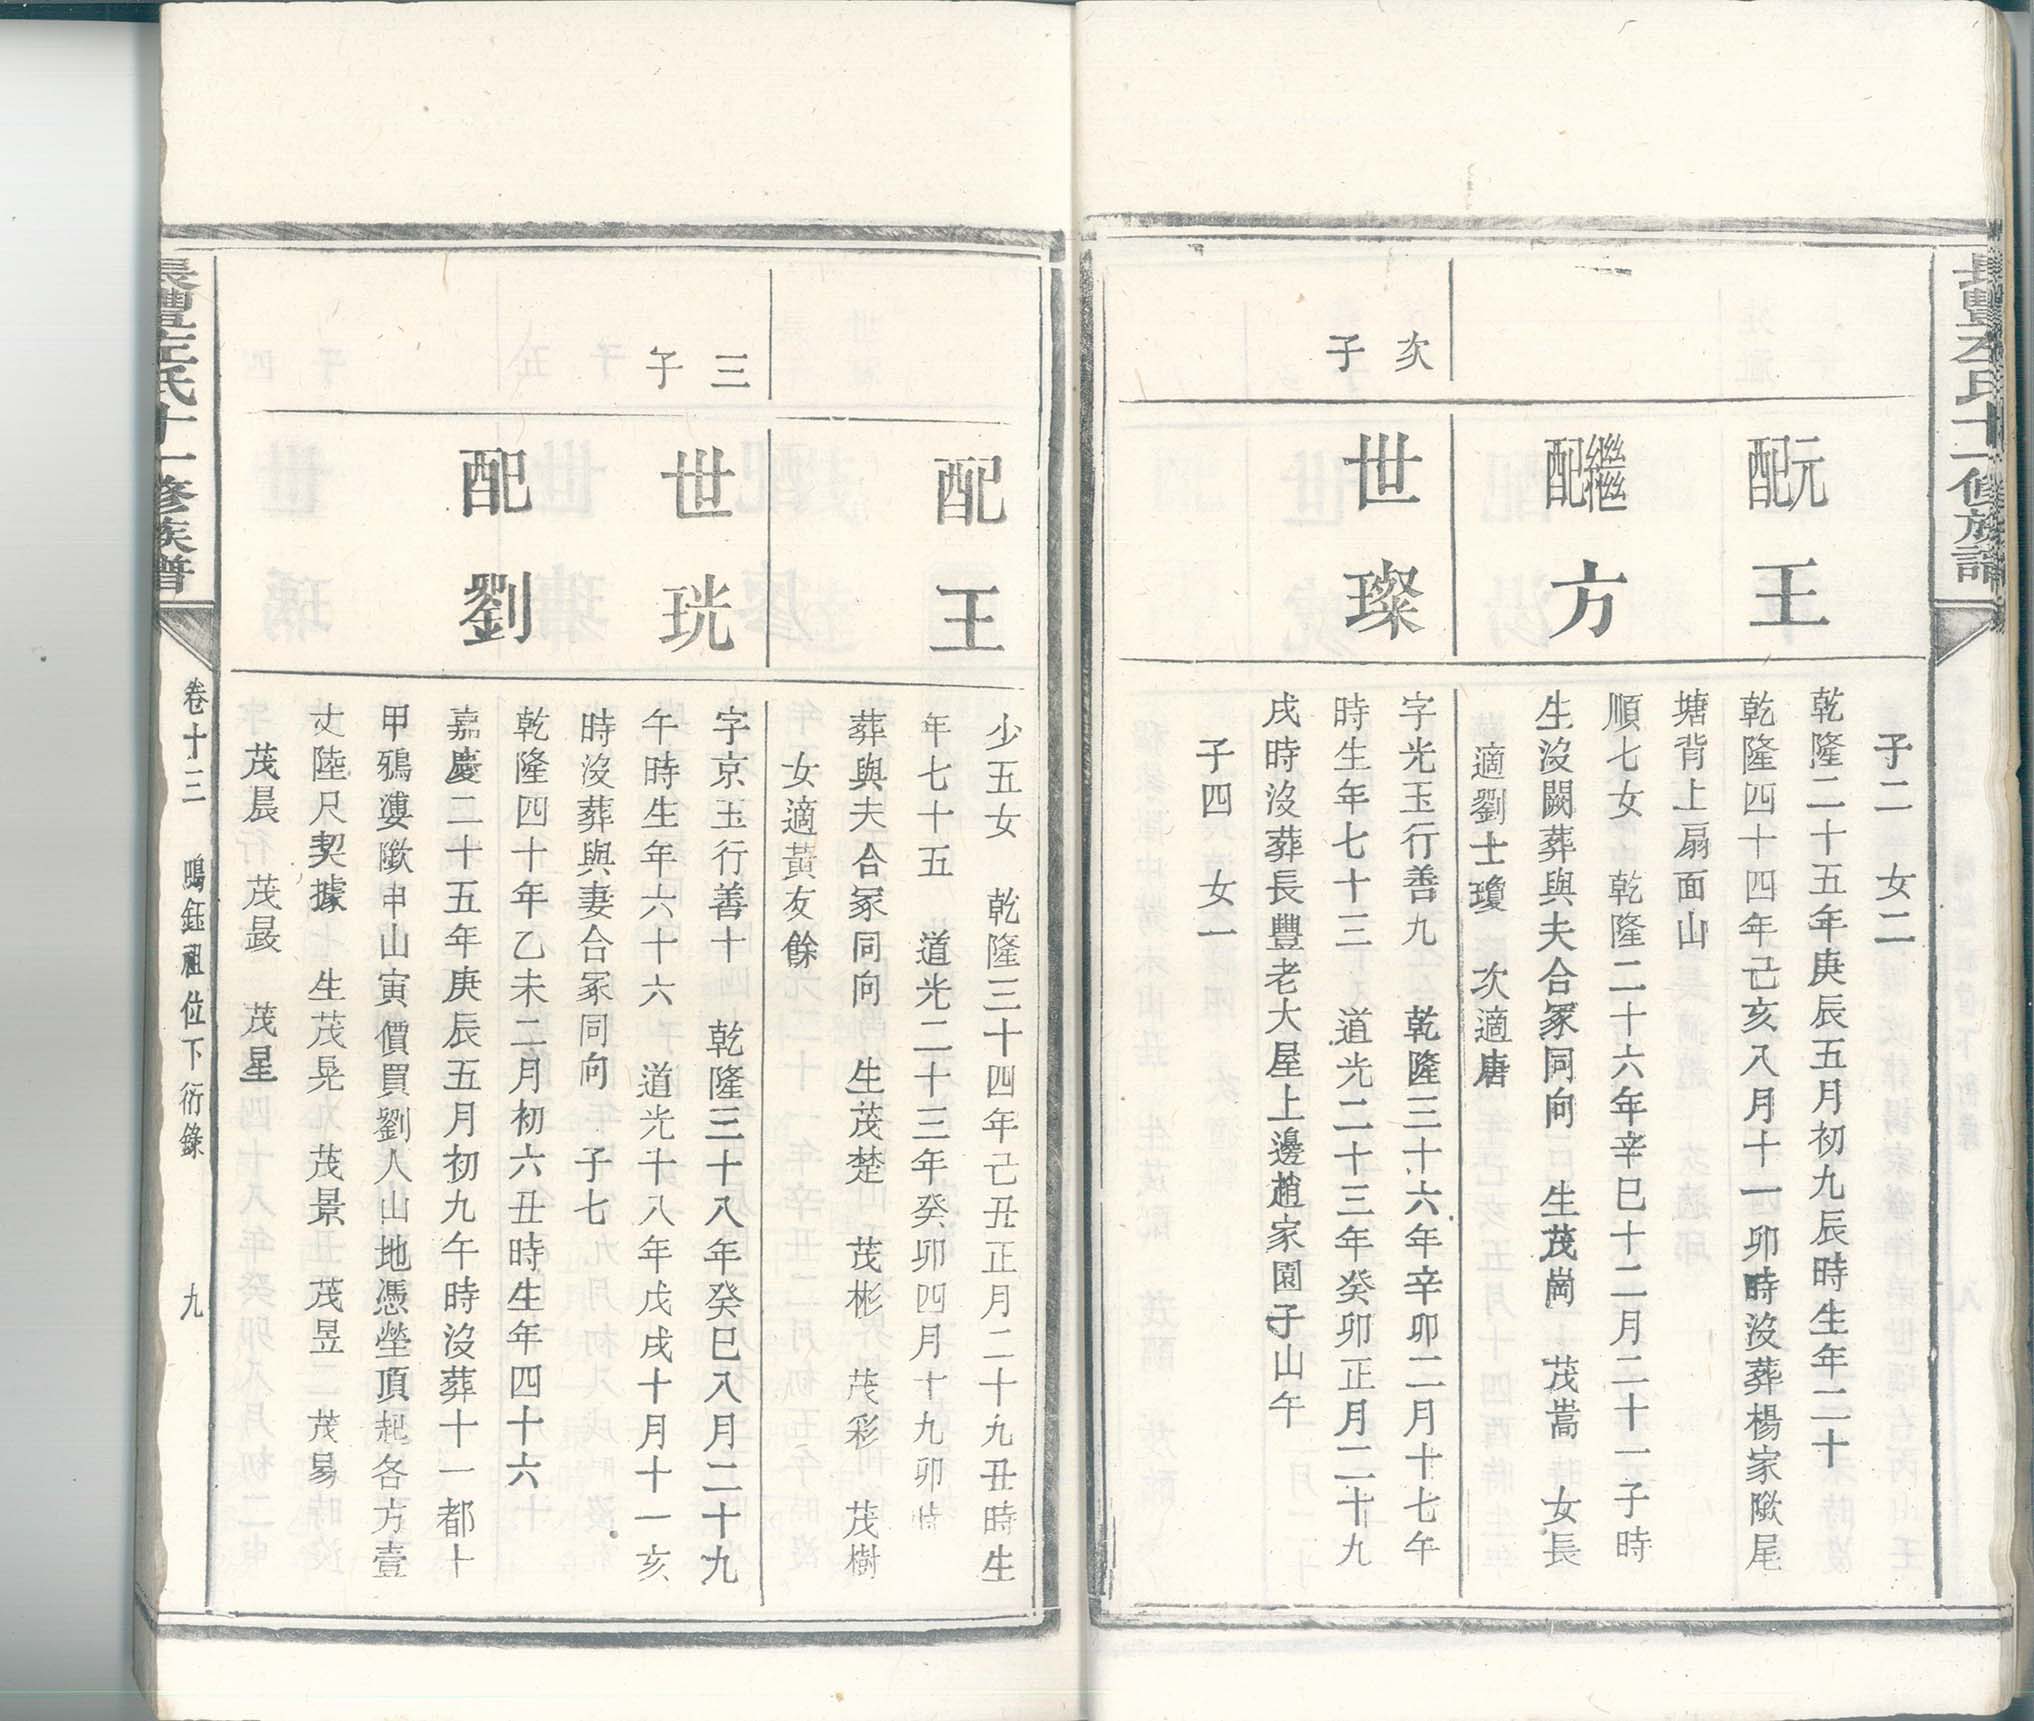 長豐左氏十一修族譜
子二　女二
元配王
乾隆二十五年庚辰五月初九辰時生年二十
乾隆四十四年己亥八月十一卯時沒葬楊家陂尾
塘背上扇面山
繼配方
順七女　乾隆二十六年辛巳十二月二十一子時
生沒闕葬與夫合冢同向　生茂崗　茂嵩　女長
適劉士瓊　次適唐
次子
世璨
字光玉行善九　乾隆三十六年辛卯二月十七午
時生年七十三　道光二十三年癸卯正月二十九
戌時沒葬長豐老大屋上邊趙家園子山午
子四　女一
配王
少五女　乾隆三十四年己丑正月二十九丑時生
年七十五　道光二十三年癸卯四月十九卯時
葬與夫合冢同向　生茂楚　茂彬　茂彩　茂樹
女適黃友餘
三子
世珖
字京玉行善十　乾隆三十八年癸巳八月二十九
午時生年六十六　道光十八年戊戌十月十一亥
時沒葬與妻合冢同向　子七
配劉
乾隆四十年乙未二月初六丑時生年四十六
嘉慶二十五年庚辰五月初九午時沒葬十一都十
甲鴉婁陂申山寅價買劉人山地憑塋頂起各方壹
丈陸尺契據　生茂晃　茂景　茂昱　茂易
茂晨　茂晸　茂星
長豐左氏十一修族譜
卷十三　鳴鈺祖位下衍錄　九